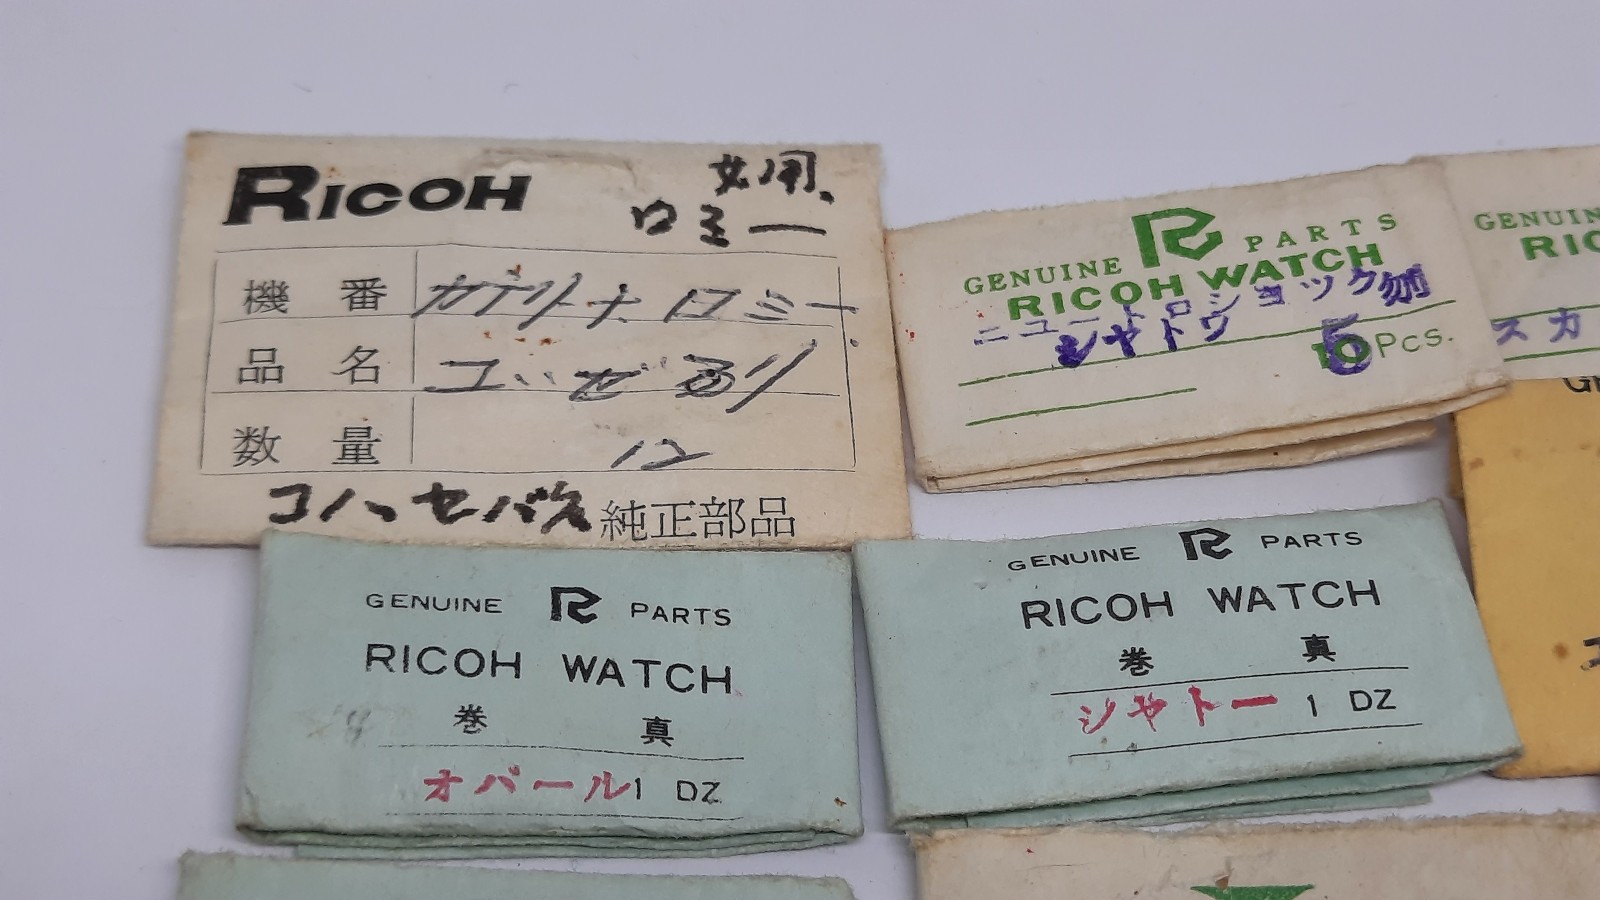 RICOH
女用.
ロミー
機番 カテリーナロミー
品名
数量 12
コハゼバネ 純正部品
GENUINE R PARTS
RICOH WATCH
ニュートロショック
シャトウ
5 Pcs.
GENUIN
RIC
スカ
GENUINE R PARTS
RICOH WATCH
巻真
オパール 1 DZ
GENUINE R PARTS
RICOH WATCH
巻真
シャトー 1 DZ